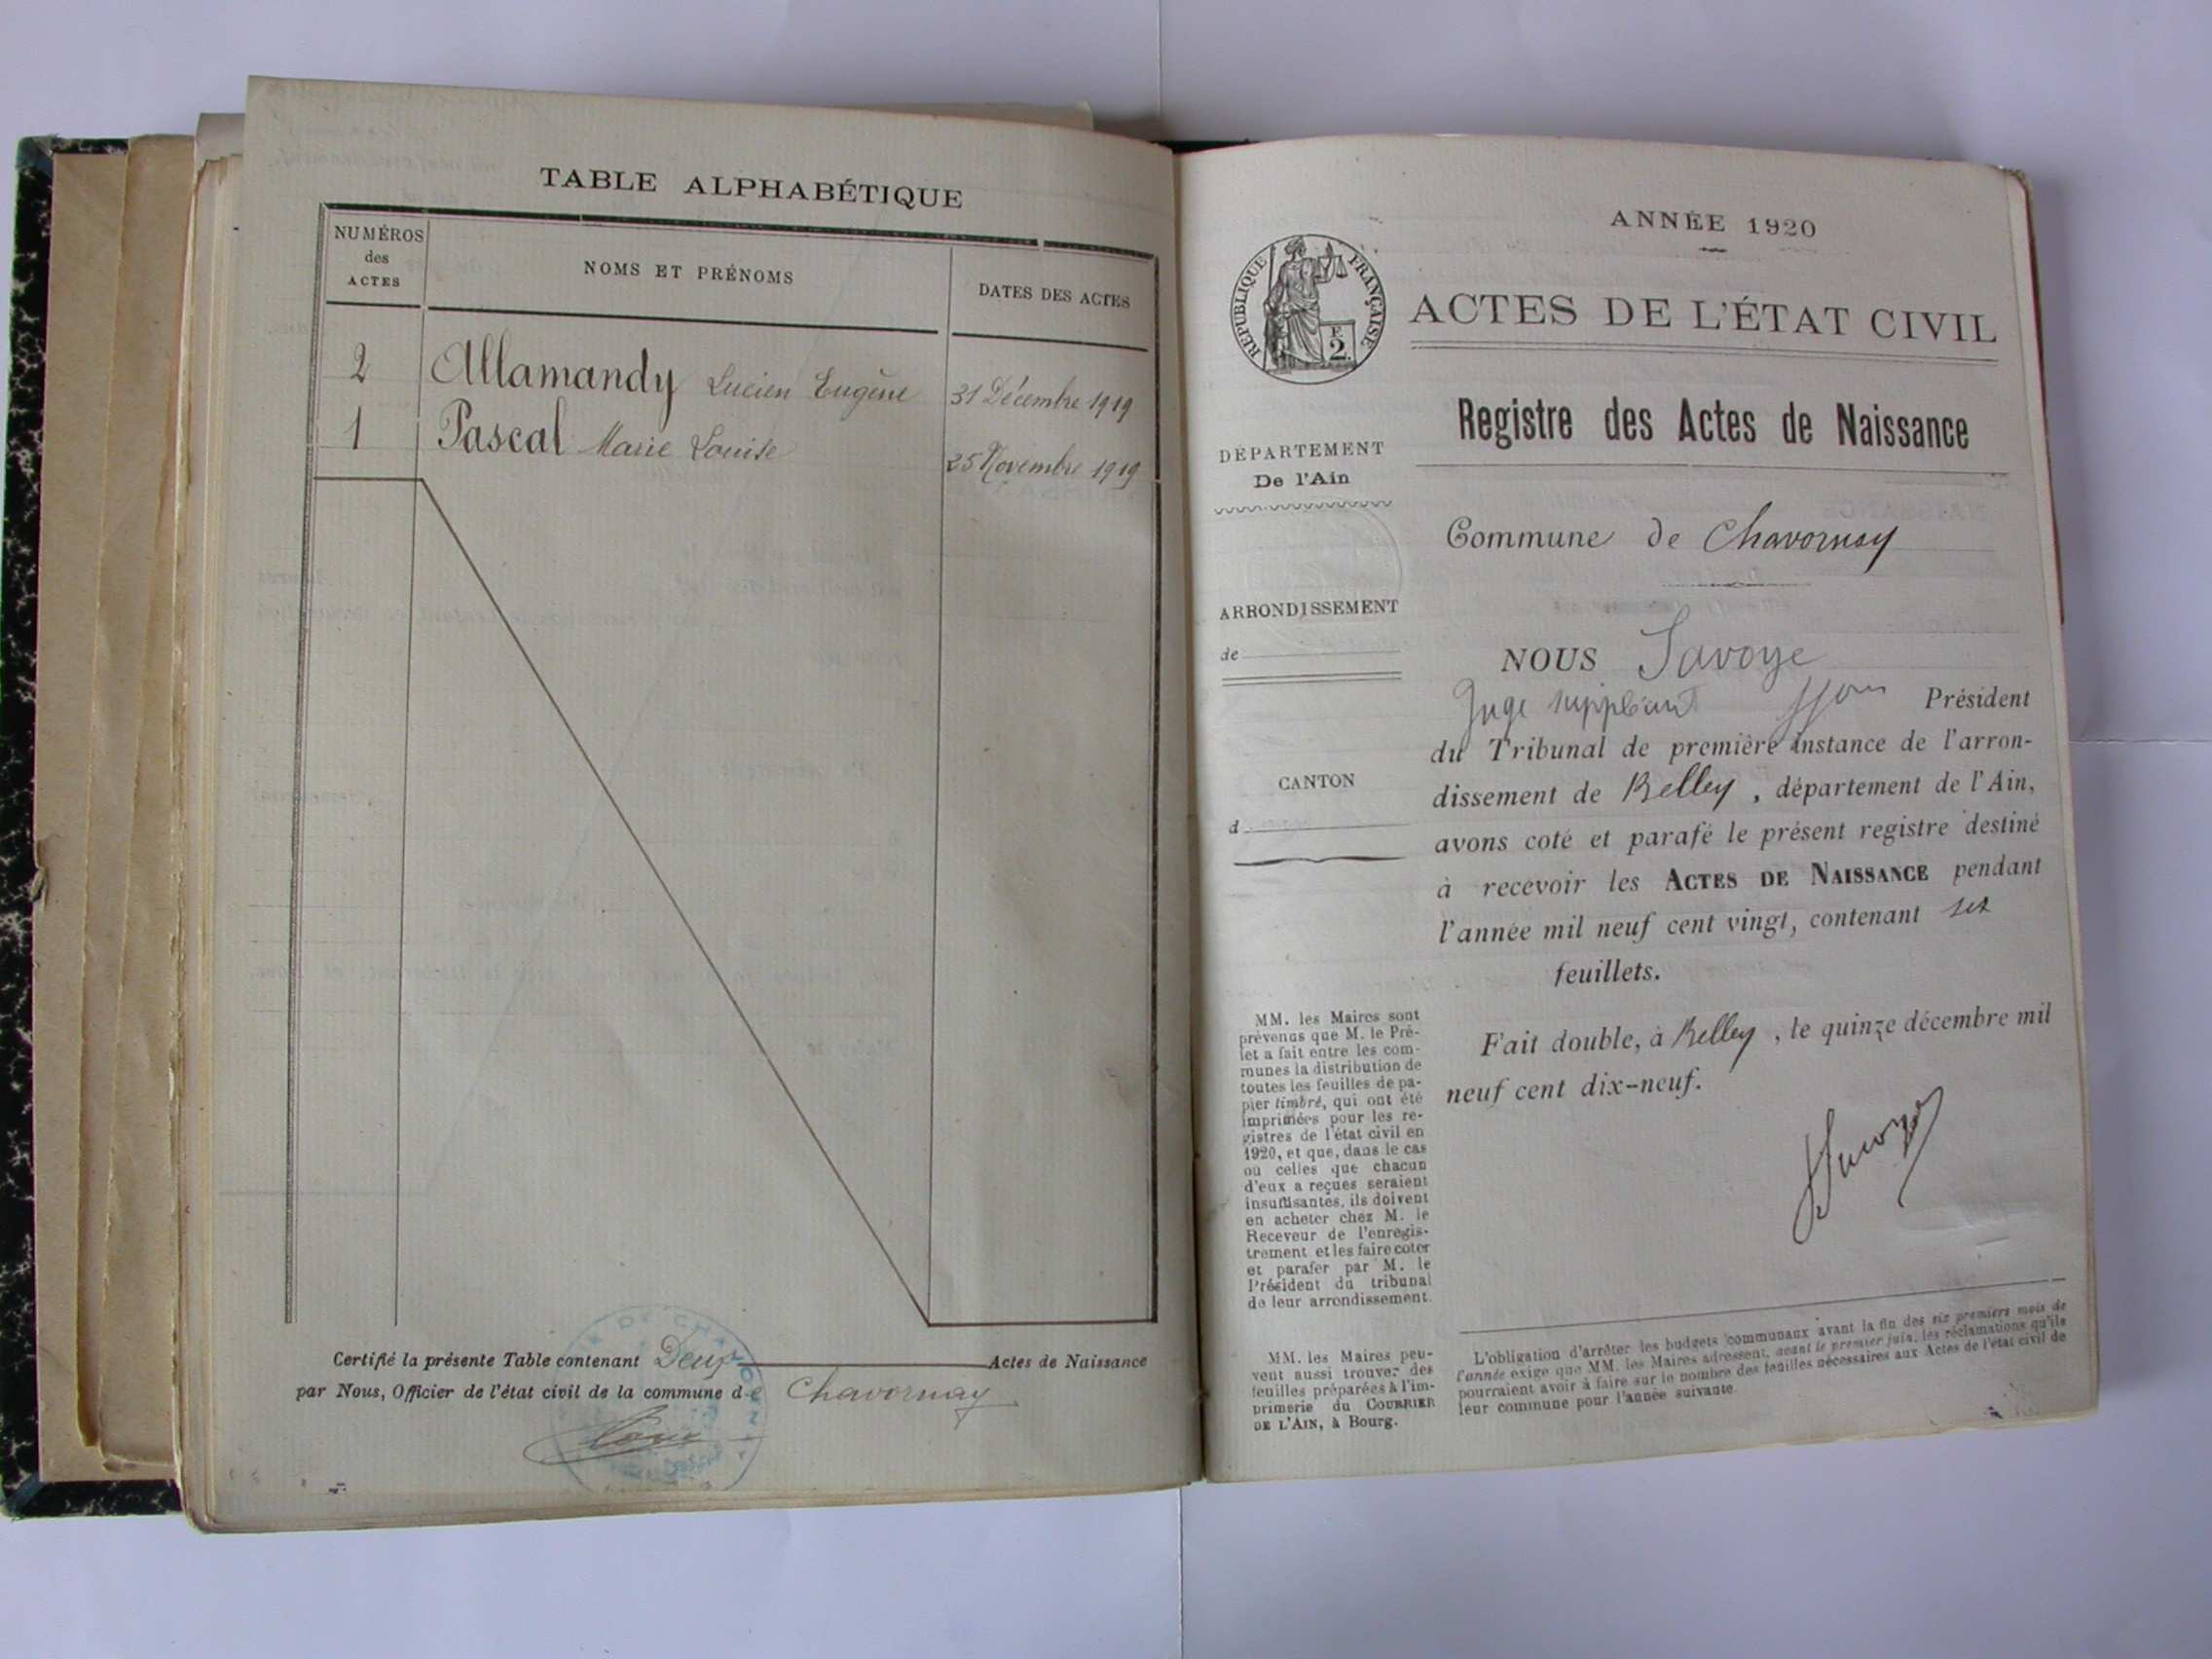 TABLE ALPHABÉTIQUE
NUMÉROS
des
ACTES
NOMS ET PRÉNOMS
DATES DES ACTES
2 Allamandy Lucien Eugène 31 Décembre 1919
1 Pascal Marie Louise 25 Novembre 1919
Certifié la présente Table contenant Deux Actes de Naissance
par Nous, Officier de l'état civil de la commune de Chavornay
ANNÉE 1920
RÉPUBLIQUE FRANÇAISE
2 F.
ACTES DE L'ÉTAT CIVIL
Registre des Actes de Naissance
DÉPARTEMENT
De l'Ain
Commune de Chavornay
ARRONDISSEMENT
de
CANTON
d
NOUS Savoye
Juge suppléant Président
du Tribunal de première instance de l'arron-
dissement de Belley, département de l'Ain,
avons coté et parafé le présent registre destiné
à recevoir les ACTES DE NAISSANCE pendant
l'année mil neuf cent vingt, contenant six
feuillets.
Fait double, à Belley, le quinze décembre mil
neuf cent dix-neuf.
MM. les Maires sont
prévenus que M. le Pré-
fet a fait entre les com-
munes la distribution de
toutes les feuilles de pa-
pier timbré, qui ont été
imprimées pour les re-
gistres de l'état civil en
1920, et que, dans le cas
où celles que chacun
d'eux a reçues seraient
insuffisantes, ils doivent
en acheter chez M. le
Receveur de l'enregis-
trement et les faire coter
et parafer par M. le
Président du tribunal
de leur arrondissement.
MM. les Maires peu-
vent aussi trouver des
feuilles préparées à l'im-
primerie du COURRIER
DE L'AIN, à Bourg.
L'obligation d'arrêter les budgets communaux avant la fin des six premiers mois de
l'année exige que MM. les Maires adressent, avant le premier juin, les réclamations qu'ils
pourraient avoir à faire sur le nombre des feuilles nécessaires aux Actes de l'état civil de
leur commune pour l'année suivante.